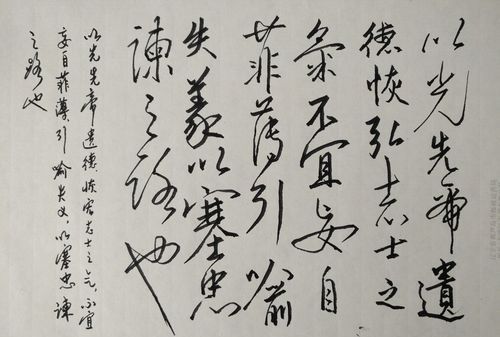 以光先帝遺
德恢弘志士之
氣不宜妄自
菲薄引喻
失義以塞忠
諫之路也
以光先帝遺德恢宏志士之氣,不宜
妄自菲薄引喻失义,以塞忠諫
之路也